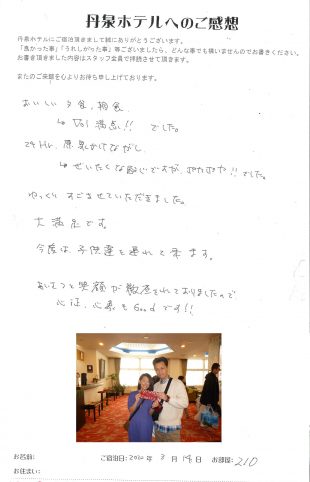 丹泉ホテルへのご感想
丹泉ホテルにご宿泊頂きまして誠にありがとうございます。
「良かった事」「うれしかった事」等ございましたら、どんな事でも構いませんのでお書きください。
お書き頂きました内容はスタッフ全員で拝読させて頂きます。
またのご来館を心よりお待ち申し上げております。
おいしい夕食、朝食
↳ Vol 満点!! でした。
24Hr. 原泉かけながし
↳ ぜいたくな配じですが、ポカポカ!! でした。
ゆっくりすごさせていただきました。
大満足です。
今度は子供達を連れて来ます。
あいさつと笑顔が徹底されておりましたので
心証、心象も Good です!!
お名前:
ご宿泊日:2020年 3月 14日 お部屋:210
お住まい: